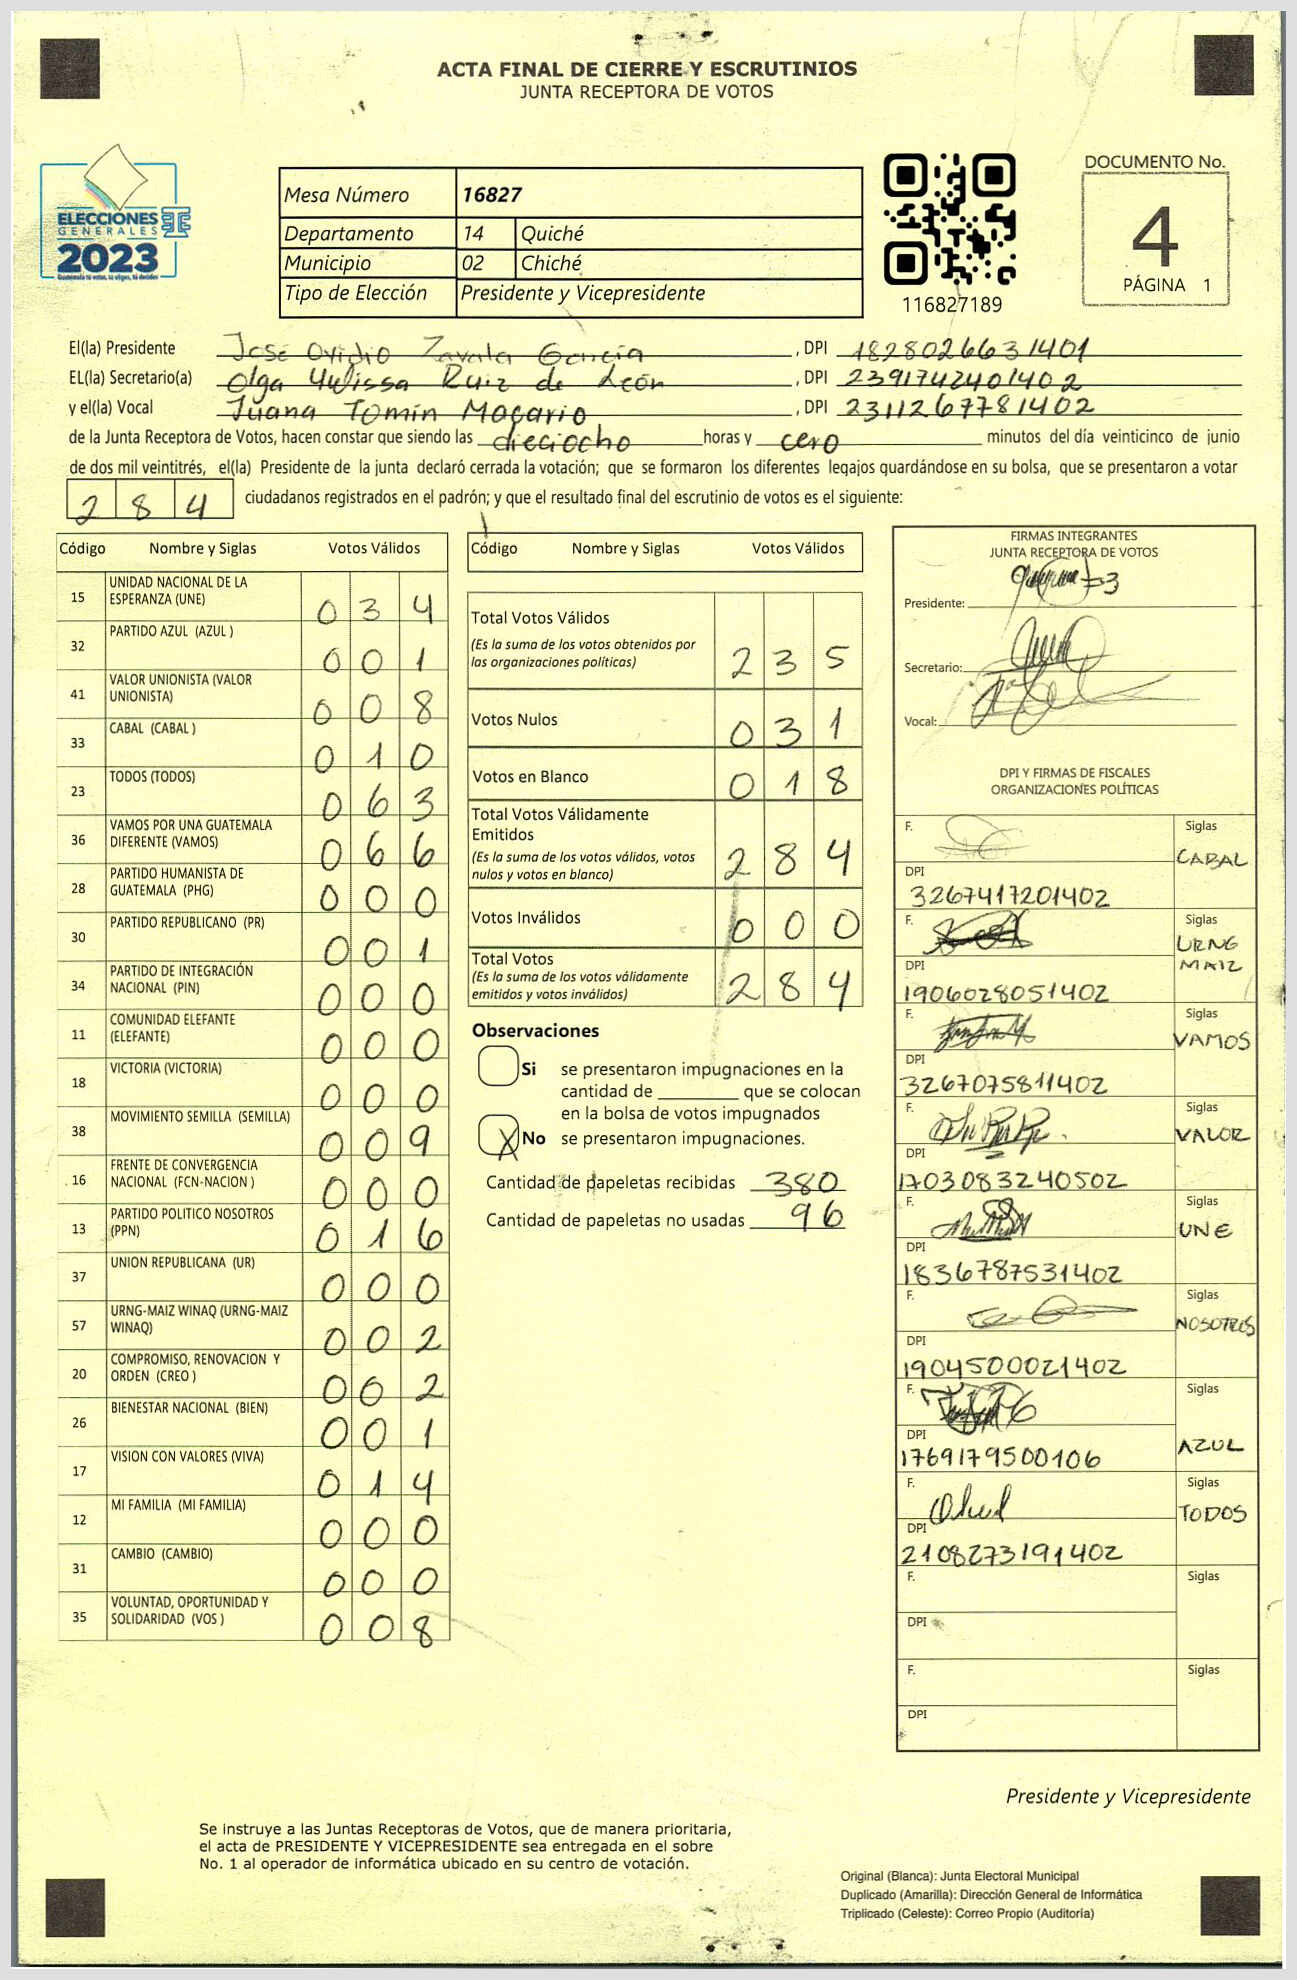 ACTA FINAL DE CIERRE Y ESCRUTINIOS
JUNTA RECEPTORA DE VOTOS
ELECCIONES
GENERALES
2023
Mesa Número 16827
Departamento 14 Quiché
Municipio 02 Chiché
Tipo de Elección Presidente y Vicepresidente
116827189
DOCUMENTO No.
4
PÁGINA 1
El(la) Presidente José Ovidio Zavala García , DPI 1828026631401
EL(la) Secretario(a) Olga Yulissa Ruiz de León , DPI 2391742401402
y el(la) Vocal Juana Tomín Macario , DPI 2311267781402
de la Junta Receptora de Votos, hacen constar que siendo las dieciocho horas y cero minutos del día veinticinco de junio
de dos mil veintitrés, el(la) Presidente de la junta declaró cerrada la votación; que se formaron los diferentes legajos quardándose en su bolsa, que se presentaron a votar
284 ciudadanos registrados en el padrón; y que el resultado final del escrutinio de votos es el siguiente:
Código Nombre y Siglas Votos Válidos
15 UNIDAD NACIONAL DE LA ESPERANZA (UNE) 034
32 PARTIDO AZUL (AZUL ) 001
41 VALOR UNIONISTA (VALOR UNIONISTA) 008
33 CABAL (CABAL ) 010
23 TODOS (TODOS) 063
36 VAMOS POR UNA GUATEMALA DIFERENTE (VAMOS) 066
28 PARTIDO HUMANISTA DE GUATEMALA (PHG) 000
30 PARTIDO REPUBLICANO (PR) 001
34 PARTIDO DE INTEGRACIÓN NACIONAL (PIN) 000
11 COMUNIDAD ELEFANTE (ELEFANTE) 000
18 VICTORIA (VICTORIA) 000
38 MOVIMIENTO SEMILLA (SEMILLA) 009
16 FRENTE DE CONVERGENCIA NACIONAL (FCN-NACION ) 000
13 PARTIDO POLITICO NOSOTROS (PPN) 016
37 UNION REPUBLICANA (UR) 000
57 URNG-MAIZ WINAQ (URNG-MAIZ WINAQ) 002
20 COMPROMISO, RENOVACION Y ORDEN (CREO ) 002
26 BIENESTAR NACIONAL (BIEN) 001
17 VISION CON VALORES (VIVA) 014
12 MI FAMILIA (MI FAMILIA) 000
31 CAMBIO (CAMBIO) 000
35 VOLUNTAD, OPORTUNIDAD Y SOLIDARIDAD (VOS ) 008
Código Nombre y Siglas Votos Válidos
Total Votos Válidos 235
(Es la suma de los votos obtenidos por
las organizaciones políticas)
Votos Nulos 031
Votos en Blanco 018
Total Votos Válidamente
Emitidos 284
(Es la suma de los votos válidos, votos
nulos y votos en blanco)
Votos Inválidos 000
Total Votos 284
(Es la suma de los votos válidamente
emitidos y votos inválidos)
Observaciones
Si se presentaron impugnaciones en la
cantidad de ________ que se colocan
en la bolsa de votos impugnados
X No se presentaron impugnaciones.
Cantidad de papeletas recibidas 380
Cantidad de papeletas no usadas 96
FIRMAS INTEGRANTES
JUNTA RECEPTORA DE VOTOS
Presidente:
Secretario:
Vocal:
DPI Y FIRMAS DE FISCALES
ORGANIZACIONES POLÍTICAS
F. Siglas
CABAL
DPI
3267417201402
F. Siglas
URNG
MAIZ
DPI
1906028051402
F. Siglas
VAMOS
DPI
3267075811402
F. Siglas
VALOR
DPI
1703083240502
F. Siglas
UNE
DPI
1836787531402
F. Siglas
NOSOTROS
DPI
1904500021402
F. Siglas
AZUL
DPI
1769179500106
F. Siglas
TODOS
DPI
2108273191402
F. Siglas
DPI
F. Siglas
DPI
Presidente y Vicepresidente
Se instruye a las Juntas Receptoras de Votos, que de manera prioritaria,
el acta de PRESIDENTE Y VICEPRESIDENTE sea entregada en el sobre
No. 1 al operador de informática ubicado en su centro de votación.
Original (Blanca): Junta Electoral Municipal
Duplicado (Amarilla): Dirección General de Informática
Triplicado (Celeste): Correo Propio (Auditoría)